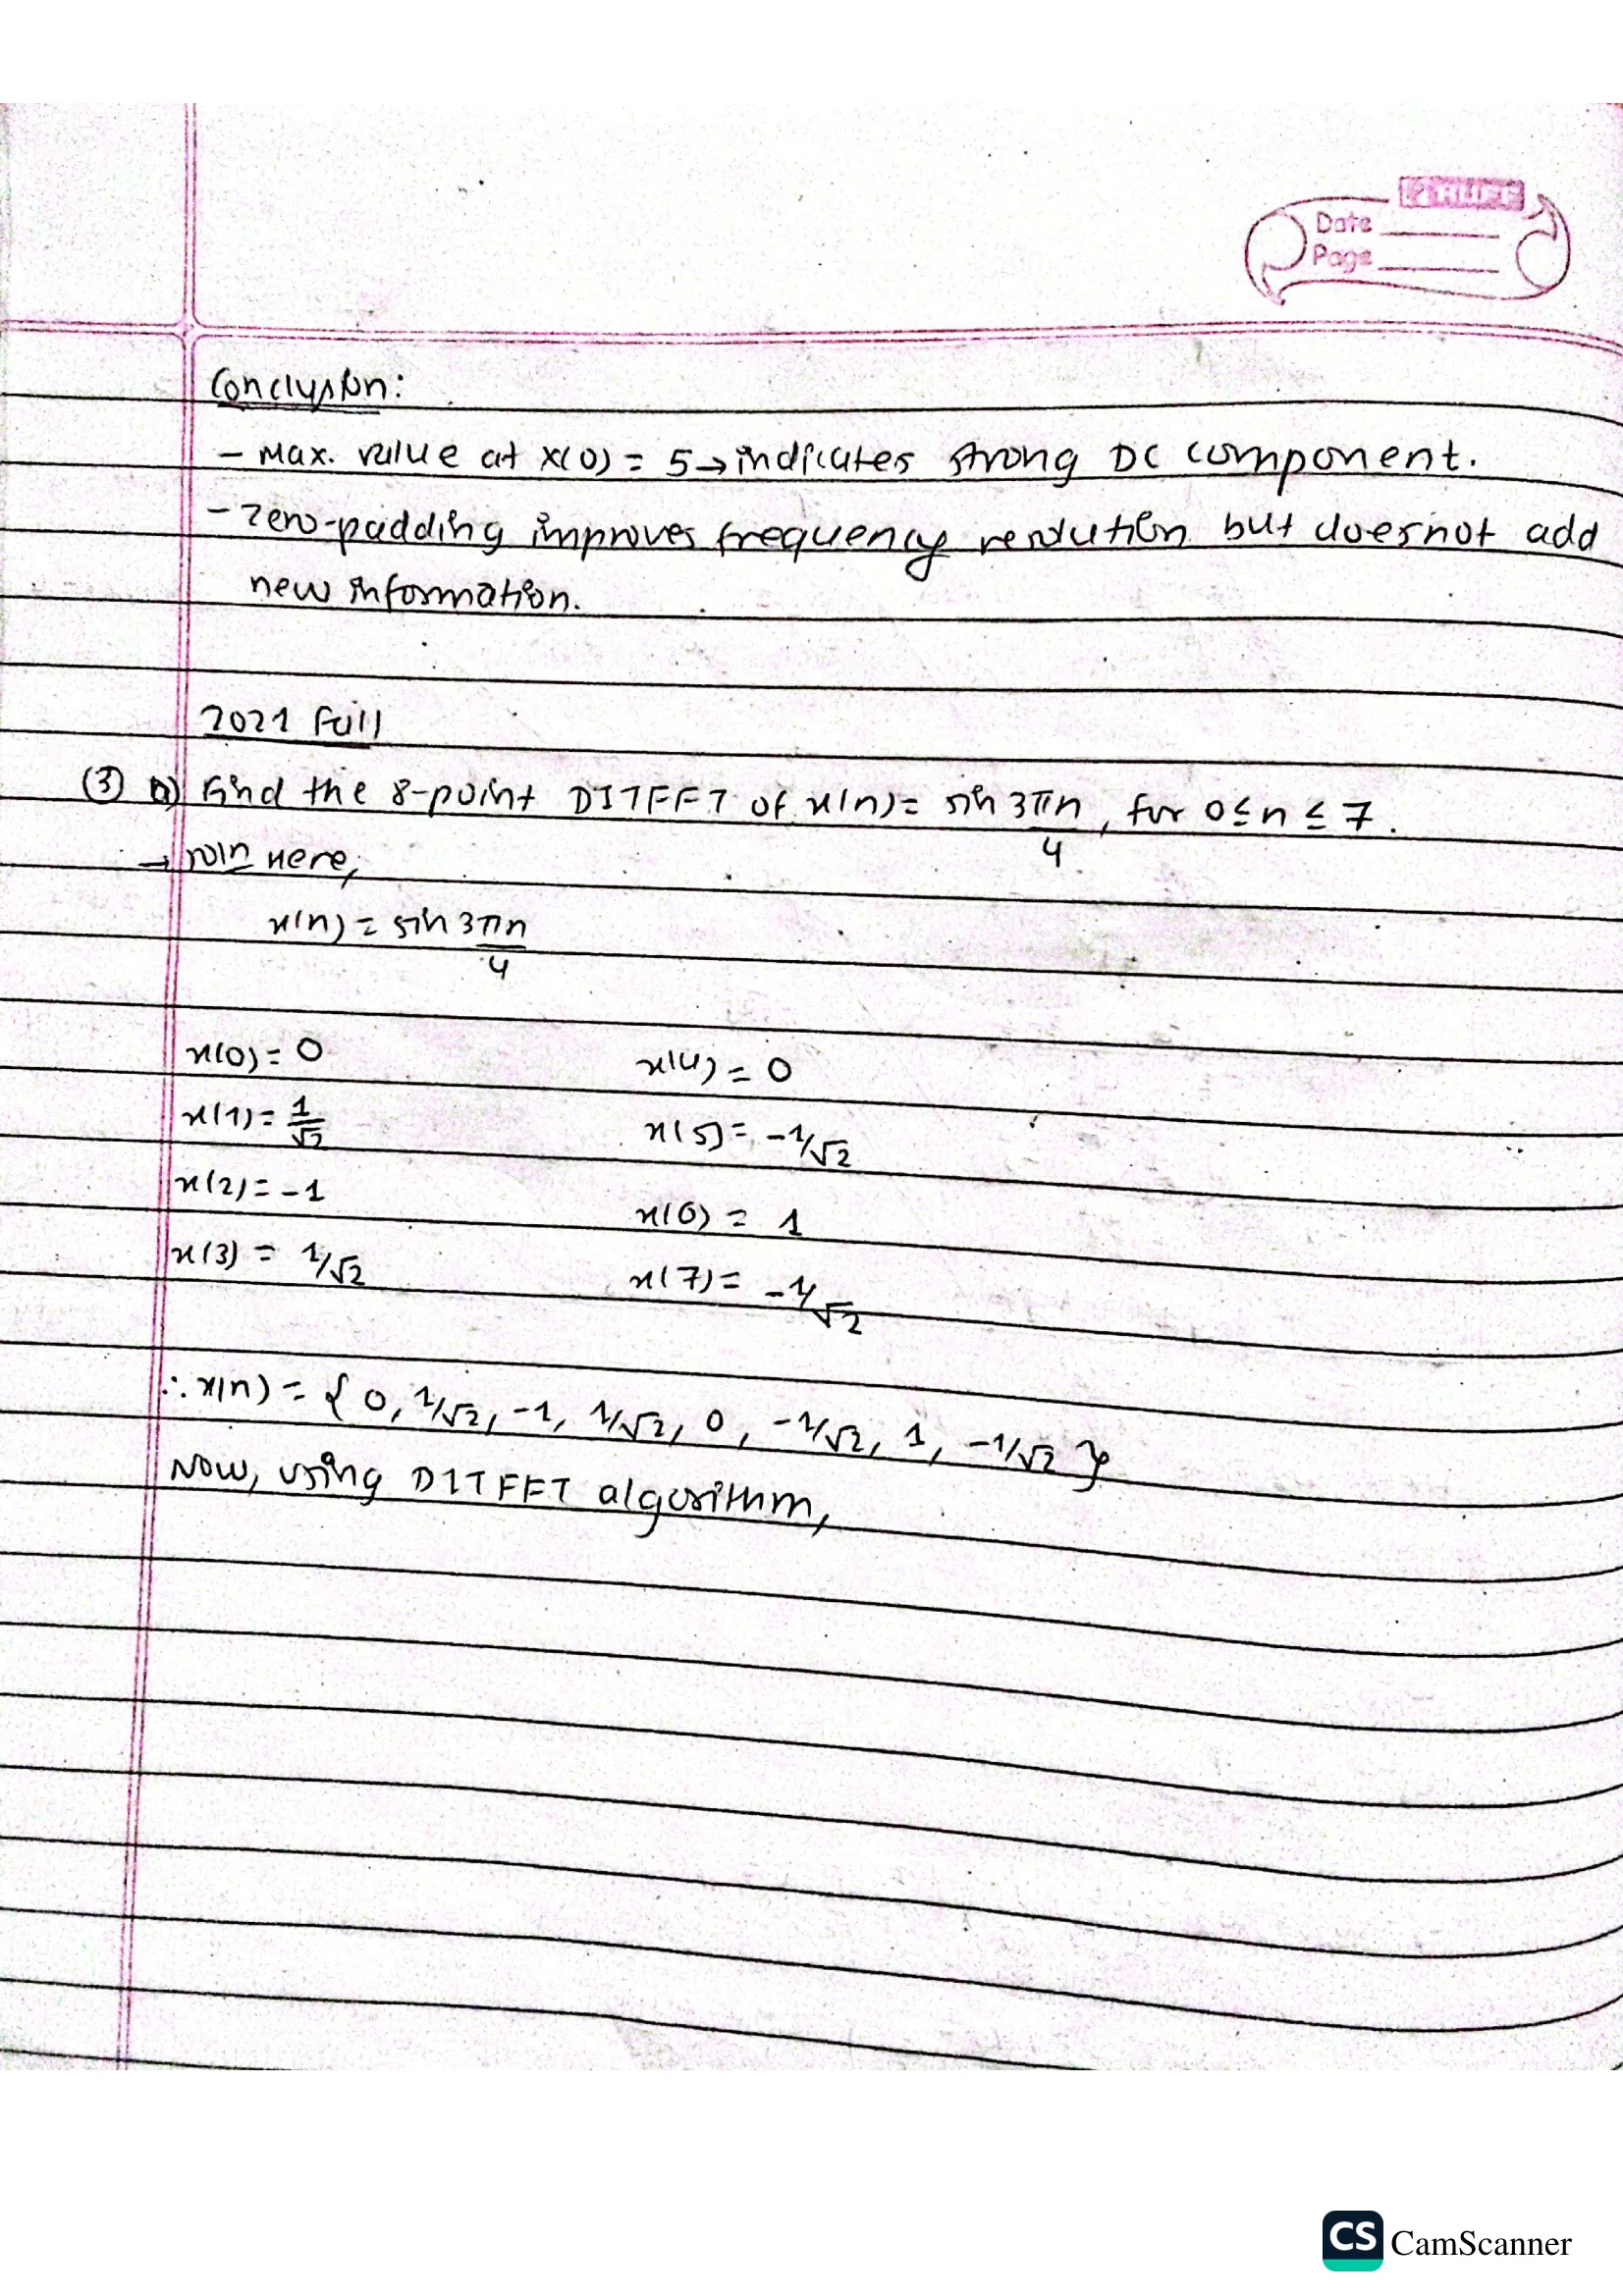 TRUFF
Date
Page
Conclusion:
- Max. value at X(0) = 5 → indicates strong DC component.
- Zero-padding improves frequency resolution but does not add
new information.
2021 Fall
(3) a) Find the 8-point DITFFT of x(n) = sin 3πn/4, for 0 ≤ n ≤ 7.
→ soln Here,
x(n) = sin 3πn/4
x(0) = 0 x(4) = 0
x(1) = 1/√2 x(5) = -1/√2
x(2) = -1 x(6) = 1
x(3) = 1/√2 x(7) = -1/√2
∴ x(n) = { 0, 1/√2, -1, 1/√2, 0, -1/√2, 1, -1/√2 }
Now, using DITFFT algorithm,
CS CamScanner